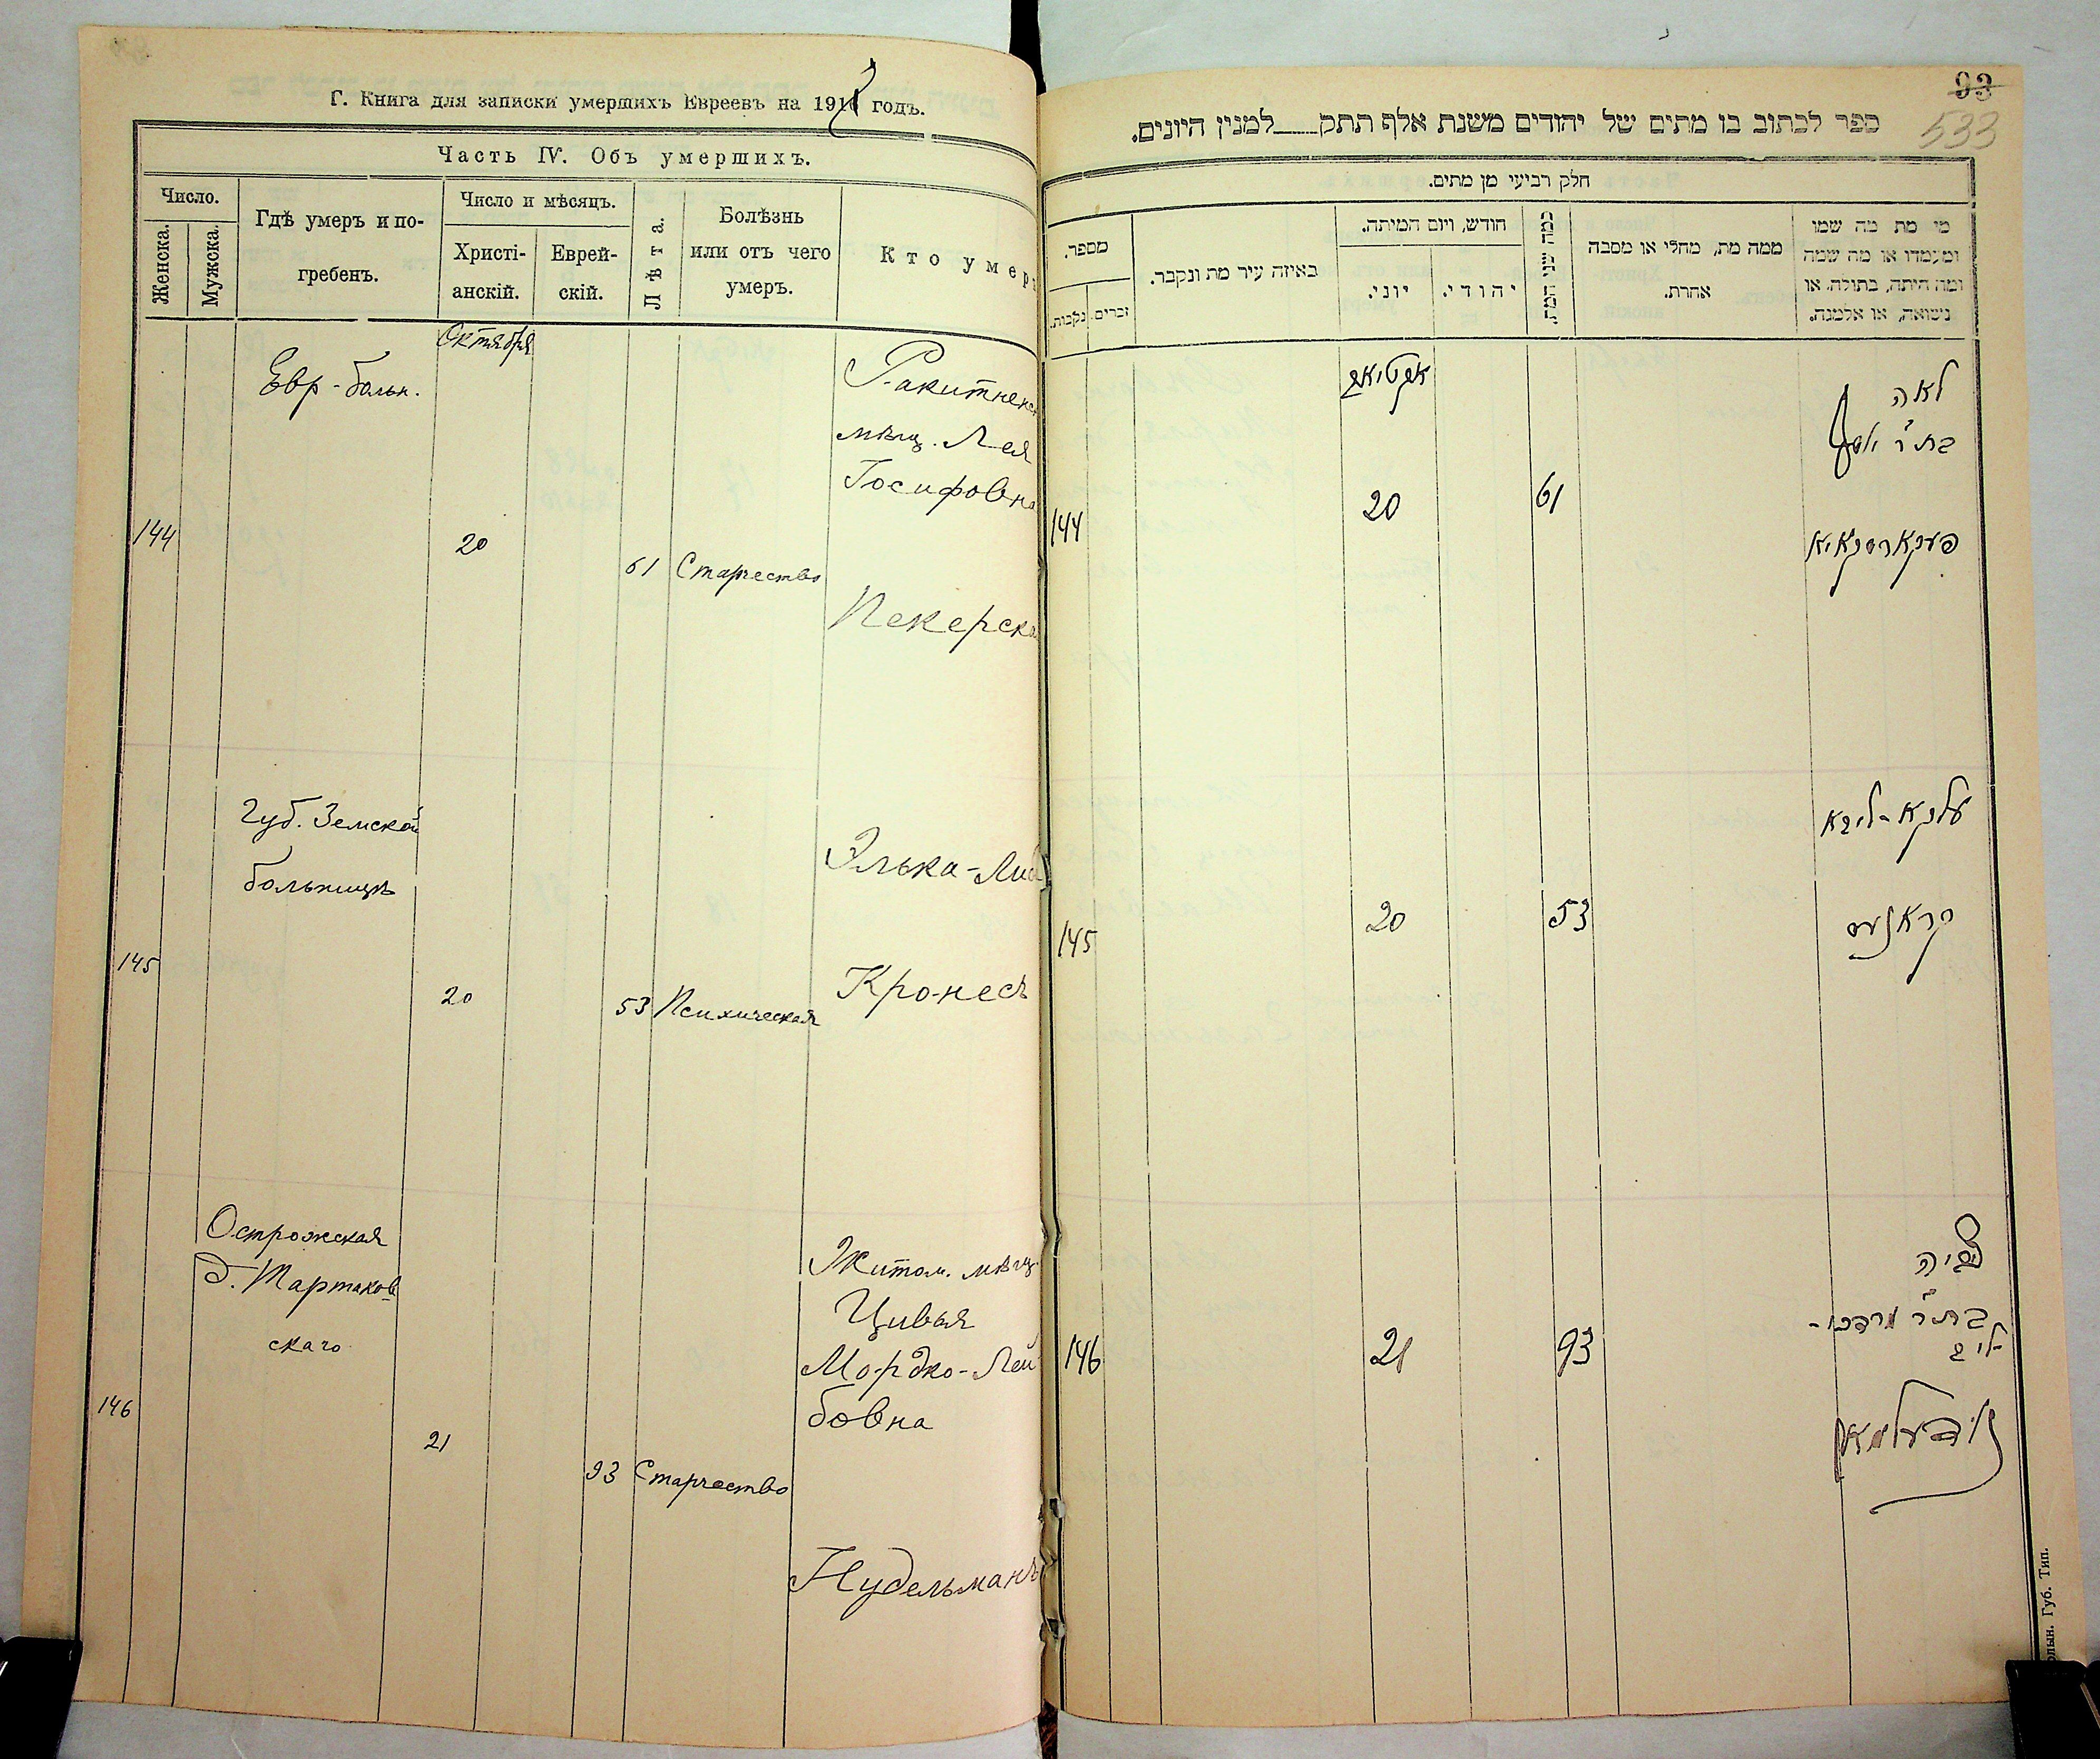 Г. Книга для записки умершихъ Евреевъ на 191 годъ.
Часть IV. Объ умершихъ.
Число.
Женска.
Мужска.
Гдѣ умеръ и по-
гребенъ.
Число и мѣсяцъ.
Христі-
анскій.
Еврей-
скій.
Лѣта.
Болѣзнь
или отъ чего
умеръ.
Кто умер
Октября
Евр-больн.
144
20
61
Старчество
Ракитнянс
мѣщ. Лея
Іосифовна
Пекерска
Губ. Земской
больницѣ
145
20
53
Психическая
Элька-Либ
Кронесъ
Острожская
д. Тартаков
скаго
146
21
93
Старчество
Житом. мѣщ
Цивья
Мордко-Лей
бовна
Нудельманъ
93
533
ספר לכתוב בו מתים של יהודים משנת אלף תתק____למנין היונים.
חלק רביעי מן מתים.
מספר.
נקבות.
זכרים
באיזה עיר מת ונקבר.
חודש, ויום המיתה.
יוני.
יהודי.
כמה שני המת.
ממה מת, מחלי או מסבה
אחרת.
מי מת מה שמו
ומעמדו או מה שמה
ומה היתה, בתולה או
נשואה, או אלמנה.
אקטיאב
144
20
61
לאה
בת ר' יוסף
פעקארסקאיא
145
20
53
עלקא-ליבא
קראנעס
146
21
93
צביה
בת ר' מרדכי-
ליב
נודעלמאן
Губ. Тип.